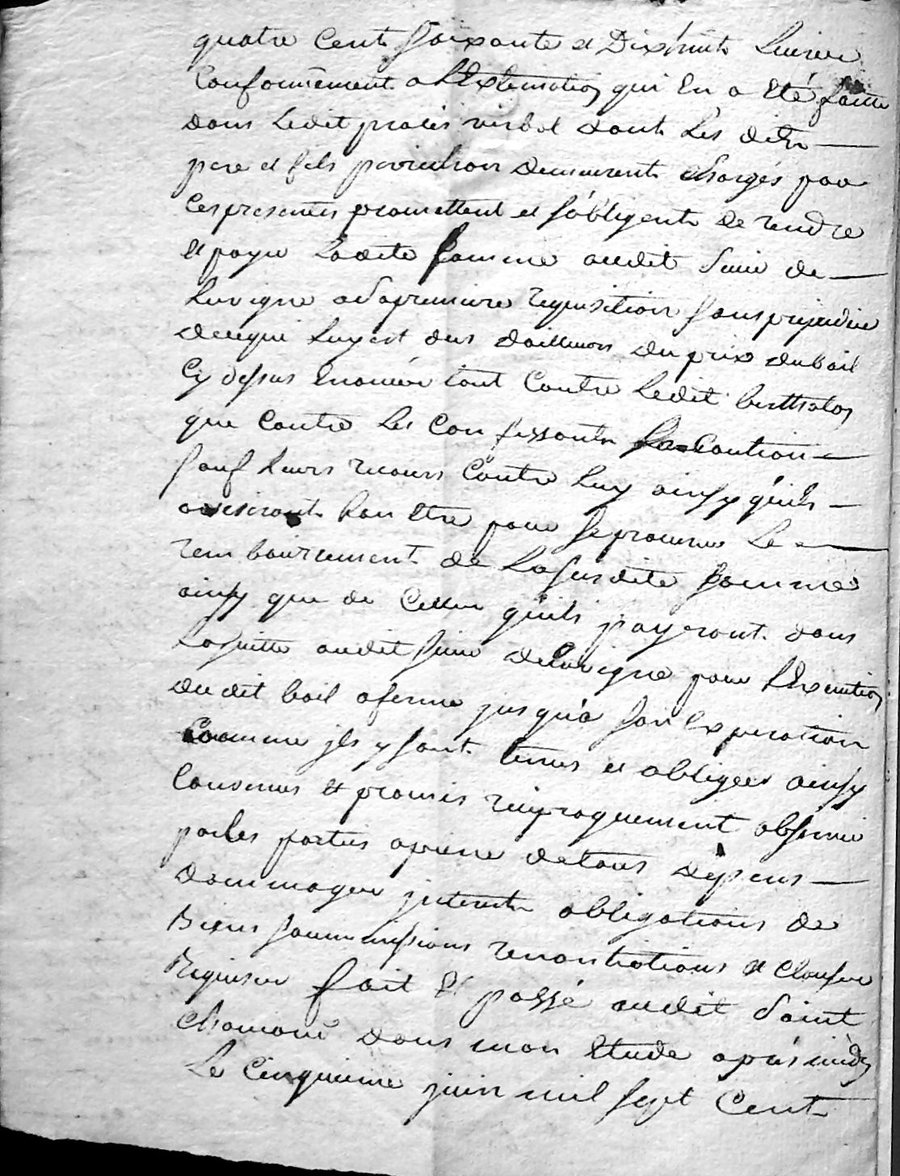 quatre Cent soixante et Dixhuit Livres
Conformement a L'Extimation qui En a Eté faitte
dans Ledit procès verbal dont Les dits
pere et fils demeurent chargés par
Ces presentes promettent et s'obligent de rendre
Et payer Ladite somme audit Sieur de
Luvigne a sa premiere requisition sans prejudice
de ce qui Luy est dus d'ailleurs du prix dubail
Cy dessus Enoncée tant Contre Ledit bertholon
que Contre Les Confessants Sa Caution
sauf Leurs recours Contre Luy ainsy qu'ils
aviseront bon Etre pour se procurer Le
remboursement de La susdite somme
ainsy que de Celles qu'ils payeront dans
La suitte audit sieur deluvigne pour L'Execution
dudit bail aferme jusqu'a son Expiration
Comme jls y sont tenus et obligées ainsy
Convenus Et promis reciproquement observer
par les parties apeine de tous depens
dommages jnterets obligations de
Biens soummissions renontiations et Clauses
Requises fait Et passé audit Saint
Chamond dans mon Etude après midy
Le Cinquieme juin mil sept Cent